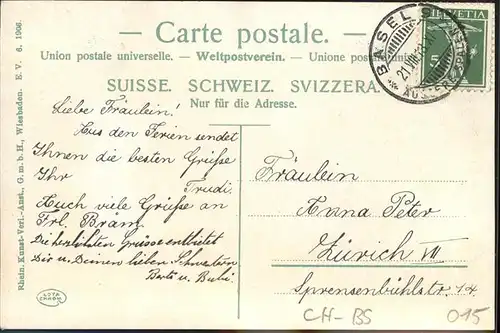 — Carte postale. —
Union postale universelle. — Weltpostverein. — Unione postale
SUISSE. SCHWEIZ. SVIZZERA.
Nur für die Adresse.
HELVETIA
5
BASEL
21.VII.
Rhein. Kunst-Verl.-Anst., G. m. b. H., Wiesbaden. E. V. 6, 1908.
Liebe Fräulein!
Aus den Ferien sendet
Ihnen die besten Grüsse
Ihr
Trudi.
Auch viele Grüsse an
Frl. Bräm
Die herzlichsten Grüsse entbietet
Dir u. Deinen lieben
Berta u. Bubi.
Fräulein
Anna Peter
Zürich III
Sprensenbühlstr. 14.
CH-BS
015